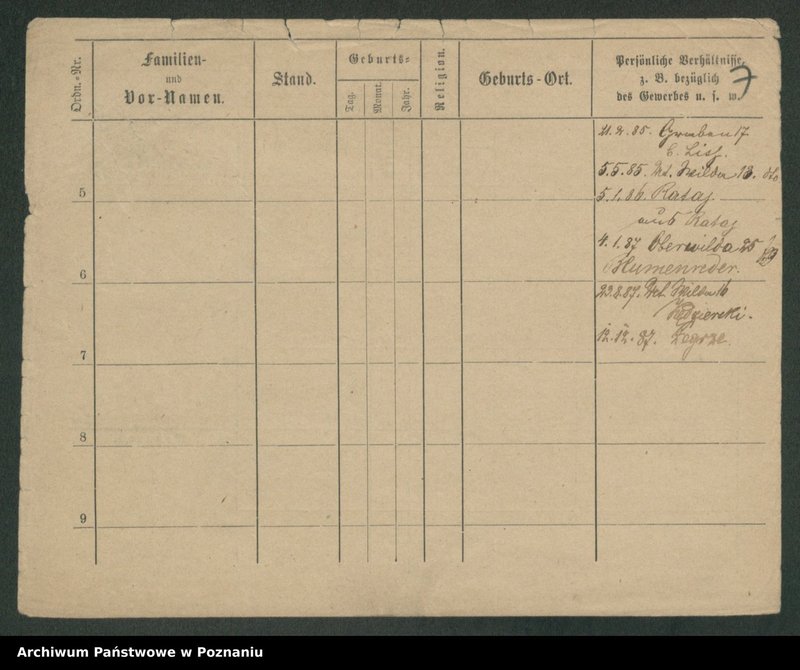 Ordn.-Nr.
Familien-
und
Vor-Namen.
Stand.
Geburts-
Tag.
Monat.
Jahr.
Religion.
Geburts-Ort.
Persönliche Verhältnisse,
z. B. bezüglich
des Gewerbes u. s. w.
7
21.2.85. Graben 17
b. Lis
5.5.85. Wilda 13.
5
5.1.86. Rataj
aus Rataj
4.1.87 Oberwilda 25
Blumenreder.
6
23.8.87. Wilda 16
12.12.87. Zegrze.
7
8
9
Archiwum Państwowe w Poznaniu